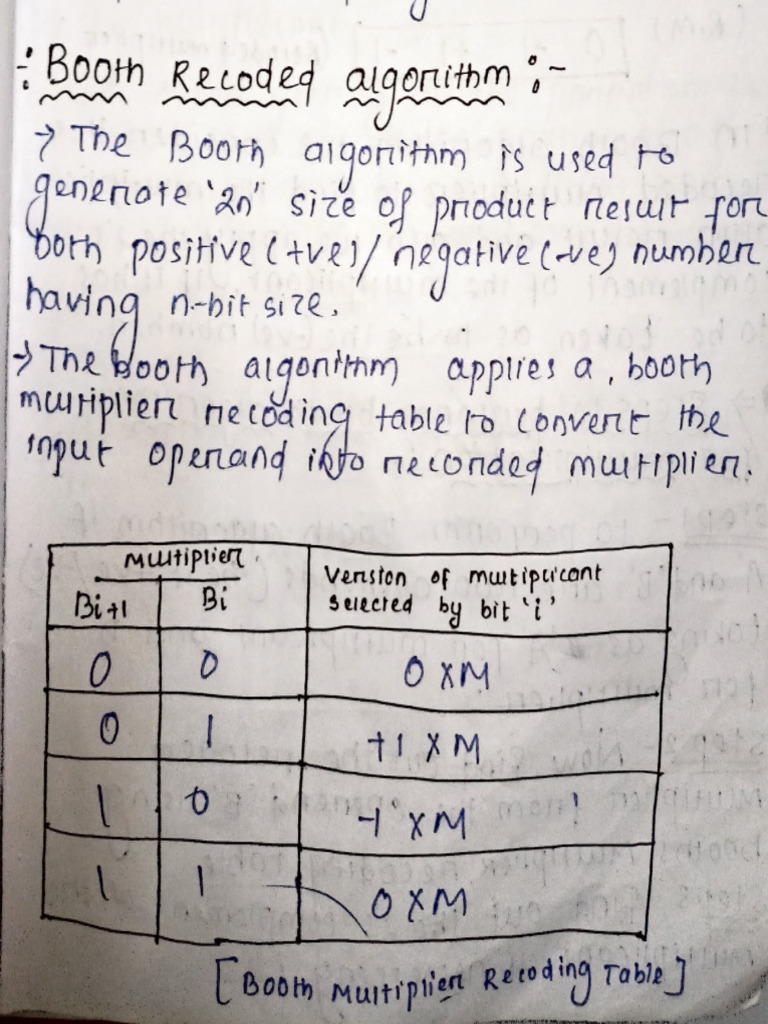 -: Booth Recoded algorithm :-
→ The Booth algorithm is used to
generate '2n" size of product result for
both positive (+ve) / negative (-ve) number
having n-bit size.
→ The Booth algorithm applies a, booth
multiplier recoding table to convert the
input operand into reconded multiplier.
Multiplier.
Version of multiplicant
Bi+1 Bi selected by bit 'i'
0 0 0 XM
0 1 +1 XM
1 0 -1 XM
1 1 0 XM
[Booth Multiplier Recoding Table]